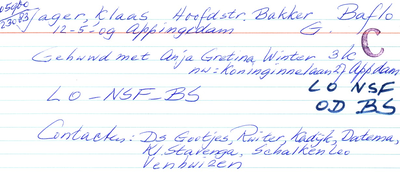 Jager, Klaas Hoofdstr. Bakker Baflo
12-5-09 Appingedam G.
C
Gehuwd met Anja Gretina Winter 3k
nw: Koninginnelaan 27 Appdam
LO - NSF - BS
LO NSF
OD BS
Contacten: Ds Gootjes, Ruiter, Kadyk, Datema,
Kl. Stavenga, Schalken Leo
Venhuizen